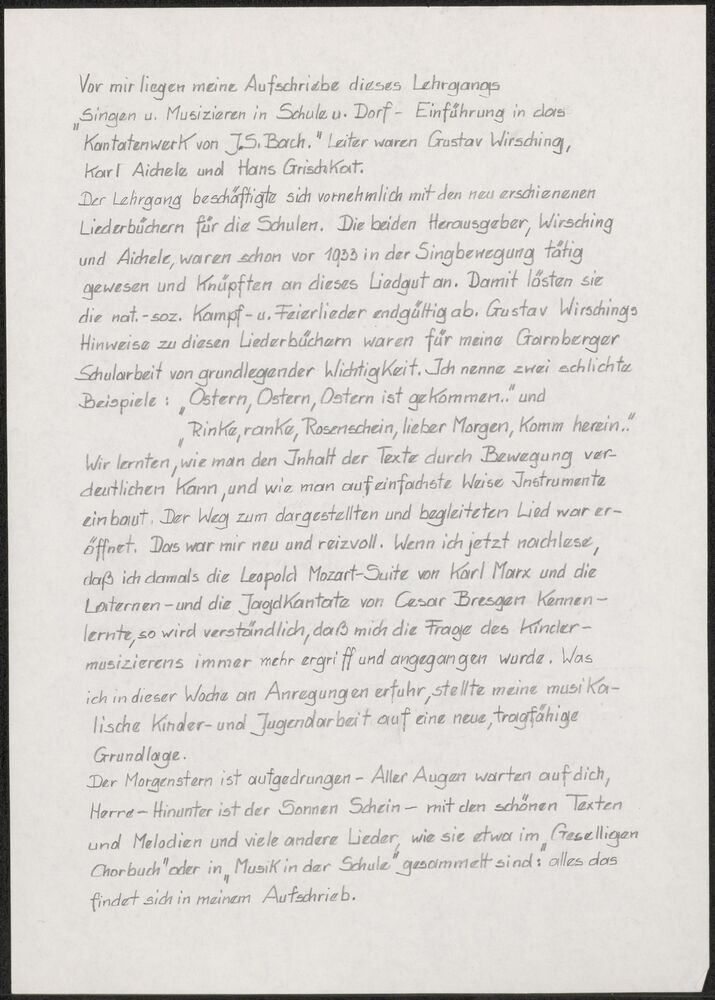 Vor mir liegen meine Aufschriebe dieses Lehrgangs
„Singen u. Musizieren in Schule u. Dorf - Einführung in das
Kantatenwerk von J.S. Bach." Leiter waren Gustav Wirsching,
Karl Aichele und Hans Grischkat.
Der Lehrgang beschäftigte sich vornehmlich mit den neu erschienenen
Liederbüchern für die Schulen. Die beiden Herausgeber, Wirsching
und Aichele, waren schon vor 1933 in der Singbewegung tätig
gewesen und knüpften an dieses Liedgut an. Damit lösten sie
die nat.-soz. Kampf- u. Feierlieder endgültig ab. Gustav Wirschings
Hinweise zu diesen Liederbüchern waren für meine Garnberger
Schularbeit von grundlegender Wichtigkeit. Ich nenne zwei schlichte
Beispiele: „Ostern, Ostern, Ostern ist gekommen.." und
„Rinke, ranke, Rosenschein, lieber Morgen, komm herein.."
Wir lernten, wie man den Inhalt der Texte durch Bewegung ver-
deutlichen kann, und wie man auf einfachste Weise Instrumente
einbaut. Der Weg zum dargestellten und begleiteten Lied war er-
öffnet. Das war mir neu und reizvoll. Wenn ich jetzt nachlese,
daß ich damals die Leopold Mozart-Suite von Karl Marx und die
Laternen- und die Jagdkantate von Cesar Bresgen kennen-
lernte, so wird verständlich, daß mich die Frage des Kinder-
musizierens immer mehr ergriff und angegangen wurde. Was
ich in dieser Woche an Anregungen erfuhr, stellte meine musika-
lische Kinder- und Jugendarbeit auf eine neue, tragfähige
Grundlage.
Der Morgenstern ist aufgedrungen - Aller Augen warten auf dich,
Herre - Hinunter ist der Sonnen Schein - mit den schönen Texten
und Melodien und viele andere Lieder, wie sie etwa im „Geselligen
Chorbuch" oder in „Musik in der Schule" gesammelt sind: alles das
findet sich in meinem Aufschrieb.